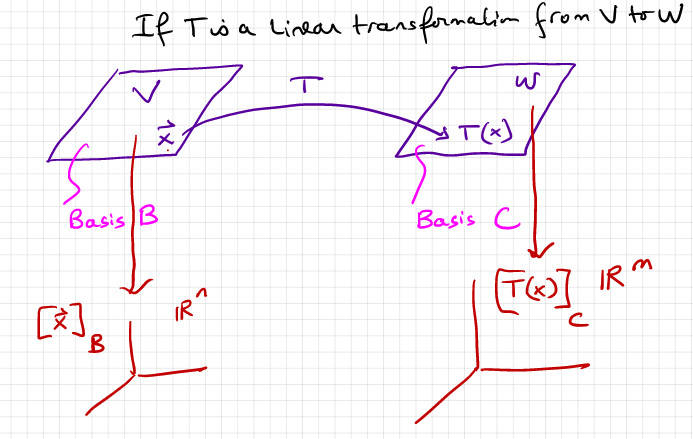 If T is a Linear transformation from V to W
V
T
W
x⃗
T(x)
Basis B
Basis C
[x⃗]_B
ℝⁿ
[T(x)]_C
ℝᵐ